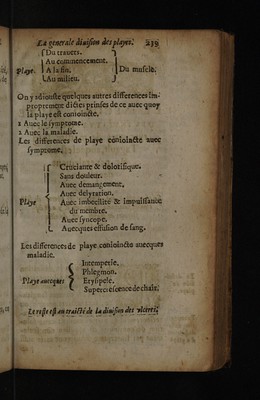 La generale diuision des playes. 239
Du trauers.
Au commencement.
Playe A la fin. Du muscle.
Au milieu.
On y adiouste quelques autres differences im-
proprement dictes prinses de ce auec quoy
la playe est conioincte.
1 Auec le symptome.
2 Auec la maladie.
Les differences de playe conioincte auec
symptome.
Cruciante & dolorifique.
Sans douleur.
Auec demangement,
Auec delyration.
Playe Auec imbecilité & impuissance
du membre.
Auec syncope.
Auecques effusion de sang.
Les differences de playe conioincte auecques
maladie.
Intemperie.
Phlegmon.
Playe auecques Erysipele.
Supercrescence de chair.
Le reste est au traicté de la diuision des vlceres.